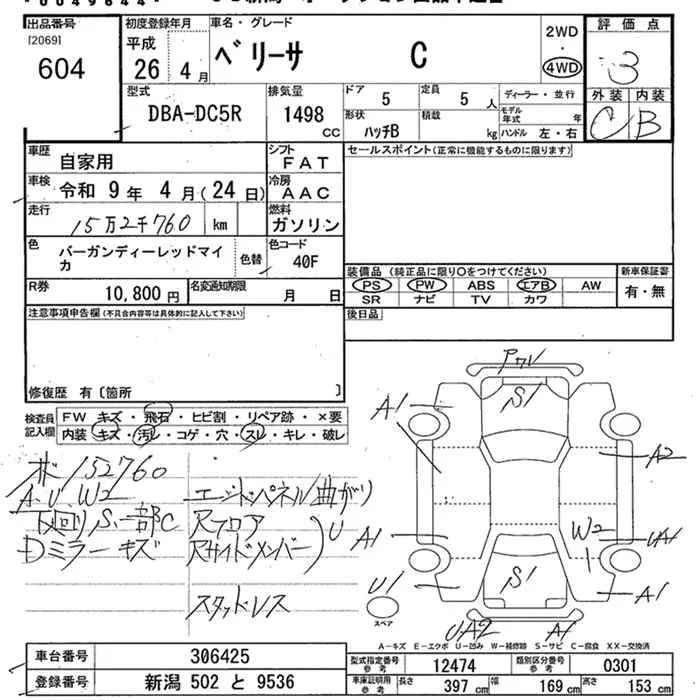 出品番号 [2069] 604
初度登録年月 平成 26 年 4 月
車名・グレード ベリーサ C
2WD・4WD
評価点 3
外装 C 内装 B
型式 DBA-DC5R
排気量 1498 CC
ドア 5
定員 5 人
ディーラー・並行
形状 ハッチB
積載 kg
モデル年式 年
ハンドル 左・右
車歴 自家用
シフト FAT
セールスポイント(正常に機能するものに限ります)
車検 令和 9 年 4 月(24 日)
冷房 AAC
走行 15万2千760 km
燃料 ガソリン
色 バーガンディーレッドマイカ
色替
色コード 40F
装備品 (純正品に限り○をつけてください)
新車保証書
PS PW ABS エアB AW
有・無
SR ナビ TV カワ
R券 10,800 円
名変通知期限 月 日
後日品
注意事項申告欄(不具合内容等は具体的に記入して下さい)
修復歴 有〔箇所 〕
検査員記入欄
FW キズ・飛石・ヒビ割・リペア跡・×要
内装 キズ・汚レ・コゲ・穴・スレ・キレ・破レ
152760
A・U W2
下回りS一部C
Dミラーキズ
エンドパネル曲がり
Rフロア
Rサイドメンバー
U
スタッドレス
S1
A1
A2
A1
W2
UA1
U1
S1
A1
UA2
A1
スペア
A-キズ E-エクボ U-凹み W-補修跡 S-サビ C-腐食 XX-交換済
車台番号 306425
登録番号 新潟 502 と 9536
型式指定番号 参考 12474
類別区分番号 参考 0301
車庫証明用 参考 長さ 397 cm 幅 169 cm 高さ 153 cm